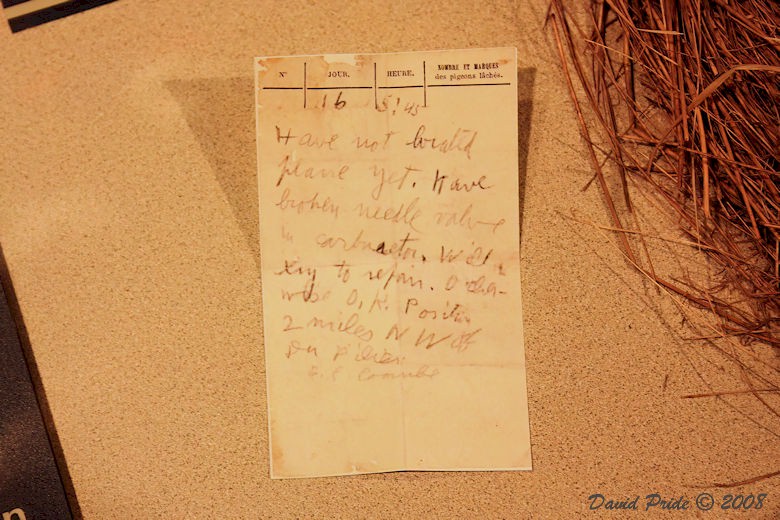 N° JOUR. HEURE. NOMBRE ET MARQUES
des pigeons lâchés.
16 5:45
Have not located
plane yet. Have
broken needle valve
in carburetor. Will
try to repair. Other-
wise O.K. Position
2 miles N W of
Coombe
n
David Pride © 2008